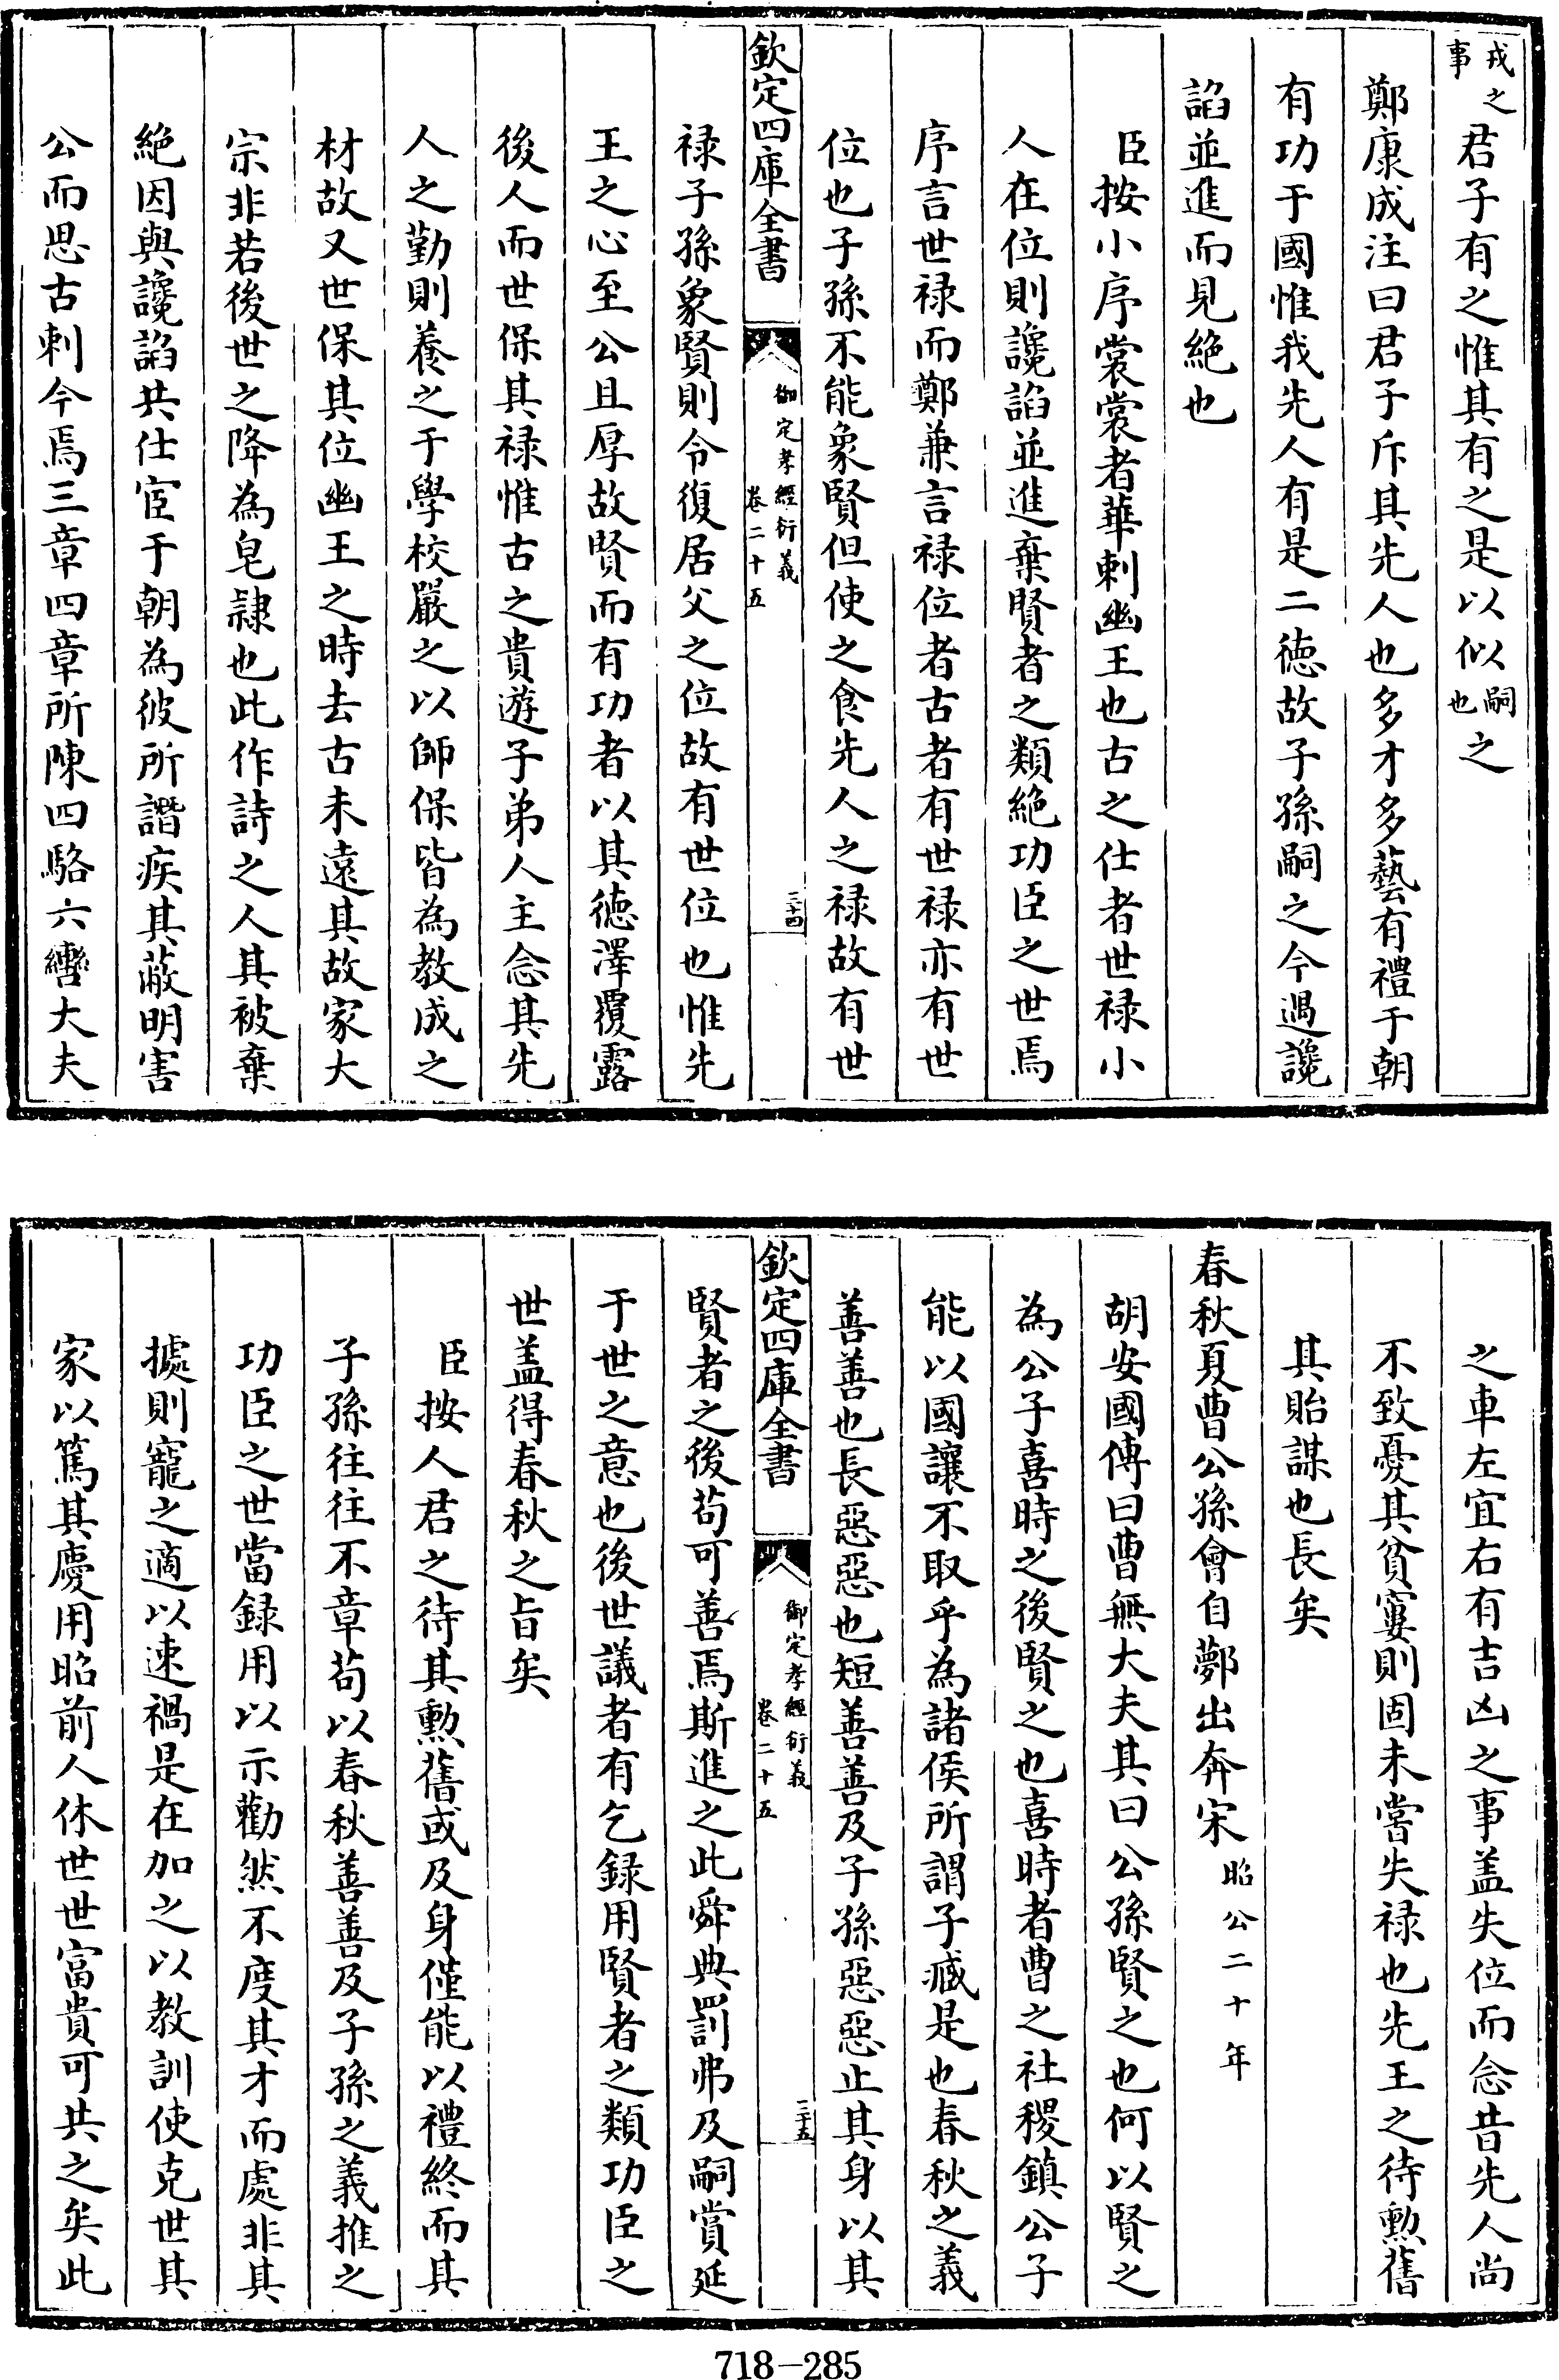 戎之事君子有之惟其有之是以似嗣也之
鄭康成注曰君子斥其先人也多才多藝有禮于朝
有功于國惟我先人有是二徳故子孫嗣之今遇讒
諂並進而見絶也
臣按小序裳裳者華刺幽王也古之仕者世禄小
人在位則讒諂並進棄賢者之類絶功臣之世焉
序言世禄而鄭兼言禄位者古者有世禄亦有世
位也子孫不能象賢但使之食先人之禄故有世
欽定四庫全書
御定孝經衍義
卷二十五
三十四
禄子孫象賢則令復居父之位故有世位也惟先
王之心至公且厚故賢而有功者以其徳澤覆露
後人而世保其禄惟古之貴遊子弟人主念其先
人之勤則養之于學校嚴之以師保皆為教成之
材故又世保其位幽王之時去古未遠其故家大
宗非若後世之降為皂隷也此作詩之人其被棄
絶因與讒諂共仕宦于朝為彼所譖疾其蔽明害
公而思古刺今焉三章四章所陳四駱六轡大夫
之車左宜右有吉凶之事盖失位而念昔先人尚
不致憂其貧窶則固未嘗失禄也先王之待勲舊
其貽謀也長矣
春秋夏曹公孫會自鄸出奔宋昭公二十年
胡安國傅曰曹無大夫其曰公孫賢之也何以賢之
為公子喜時之後賢之也喜時者曹之社稷鎮公子
能以國讓不取乎為諸侯所謂子臧是也春秋之義
善善也長惡惡也短善善及子孫惡惡止其身以其
欽定四庫全書
御定孝經衍義
卷二十五
三十五
賢者之後苟可善焉斯進之此舜典罰弗及嗣賞延
于世之意也後世議者有乞録用賢者之類功臣之
世盖得春秋之旨矣
臣按人君之待其勲舊或及身僅能以禮終而其
子孫往往不章苟以春秋善善及子孫之義推之
功臣之世當録用以示勸然不度其才而處非其
據則寵之適以速禍是在加之以教訓使克世其
家以篤其慶用昭前人休世世富貴可共之矣此
718-285